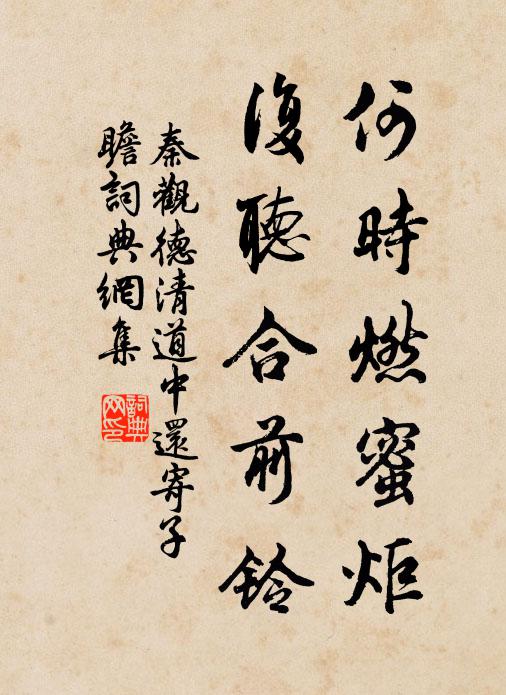 何時燃蜜炬
復聽合前鈴
秦觀德清道中還寄子
瞻詞典網集
詞典网印